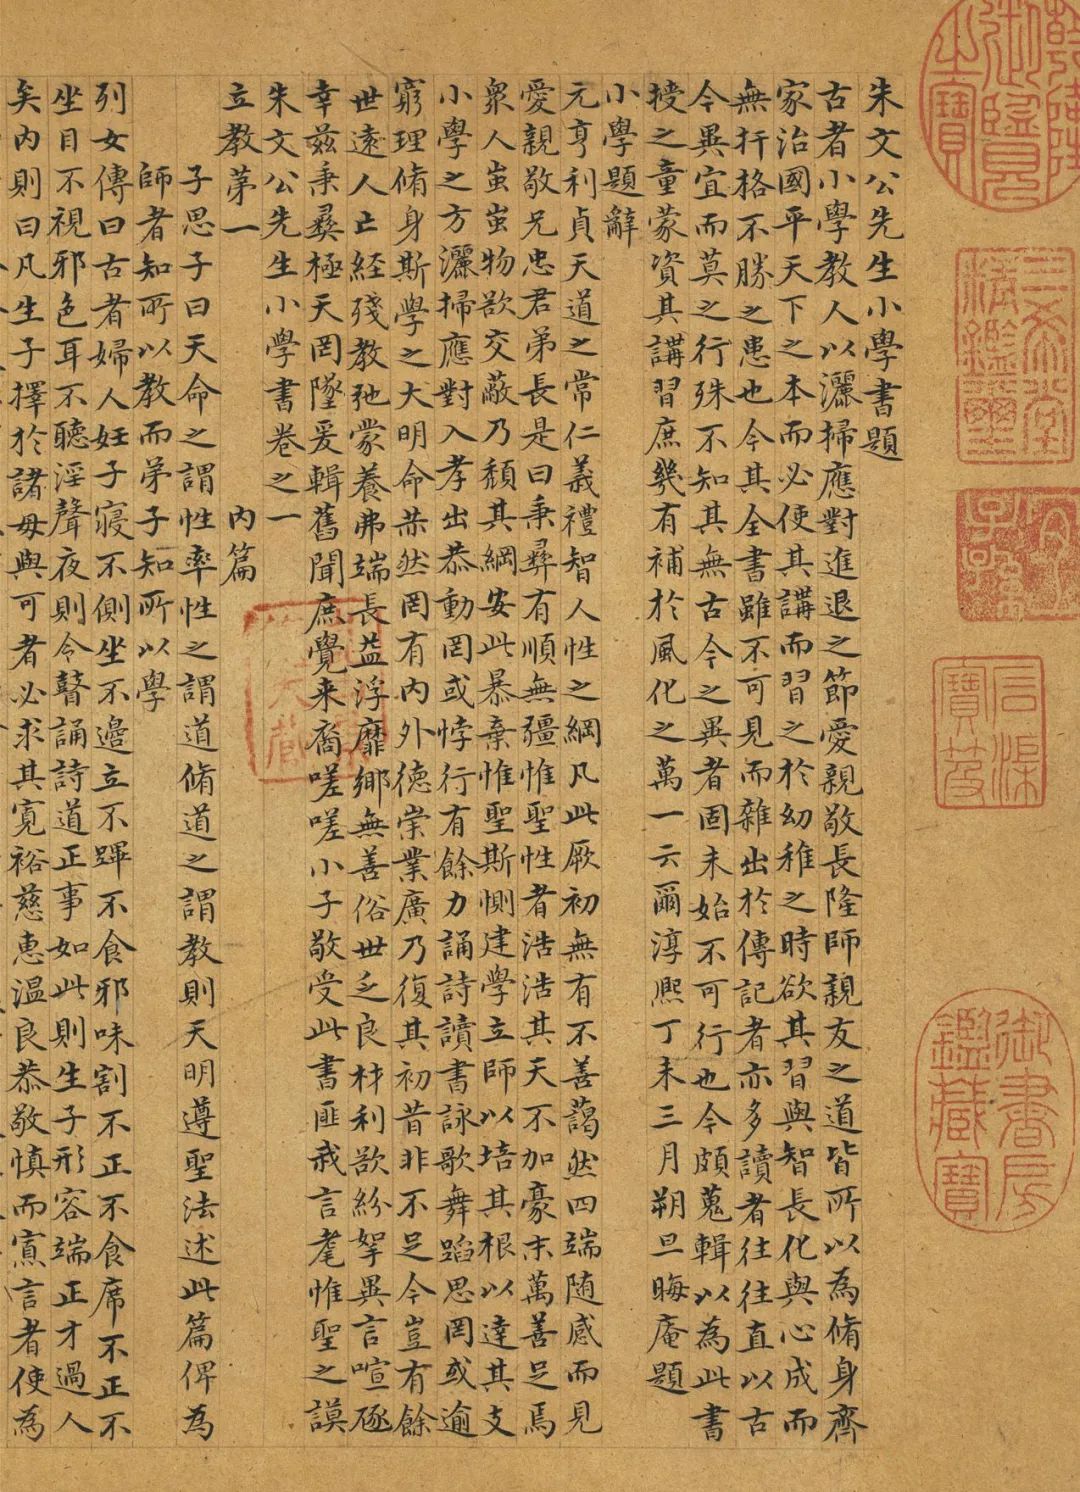 朱文公先生小學書題
古者小學教人以灑掃應對進退之節愛親敬長隆師親友之道皆所以為脩身齊
家治國平天下之本而必使其講而習之於幼稚之時欲其習與智長化與心成而
無扞格不勝之患也今其全書雖不可見而雜出於傳記者亦多讀者往往直以古
今異宜而莫之行殊不知其無古今之異者固未始不可行也今頗蒐輯以為此書
授之童蒙資其講習庶幾有補於風化之萬一云爾淳熈丁未三月朔旦晦庵題
小學題辭
元亨利貞天道之常仁義禮智人性之綱凡此厥初無有不善藹然四端随感而見
愛親敬兄忠君弟長是曰秉彞有順無疆惟聖性者浩浩其天不加豪末萬善足焉
衆人蚩蚩物欲交蔽乃頹其綱安此暴棄惟聖斯惻建學立師以培其根以達其支
小學之方灑掃應對入孝出恭動罔或悖行有餘力誦詩讀書詠歌舞蹈思罔或逾
窮理脩身斯學之大明命赫然罔有內外德崇業廣乃復其初昔非不足今豈有餘
世遠人亡経殘教弛蒙養弗端長益浮靡鄉無善俗世乏良材利欲紛挐異言喧豗
幸兹秉彞極天罔墜爰輯舊聞庶覺来裔嗟嗟小子敬受此書匪我言耄惟聖之謨
朱文公先生小學書卷之一
立教苐一 內篇
子思子曰天命之謂性率性之謂道脩道之謂教則天明遵聖法述此篇俾為
師者知所以教而弟子知所以學
列女傳曰古者婦人妊子寢不側坐不邊立不蹕不食邪味割不正不食席不正不
坐目不視邪色耳不聽淫聲夜則令瞽誦詩道正事如此則生子形容端正才過人
矣內則曰凡生子擇於諸母與可者必求其寛裕慈惠温良恭敬慎而寡言者使為
乾隆御覽之寶
三希堂精鑑璽
宜子孫
石渠寶笈
御書房鑑藏寶